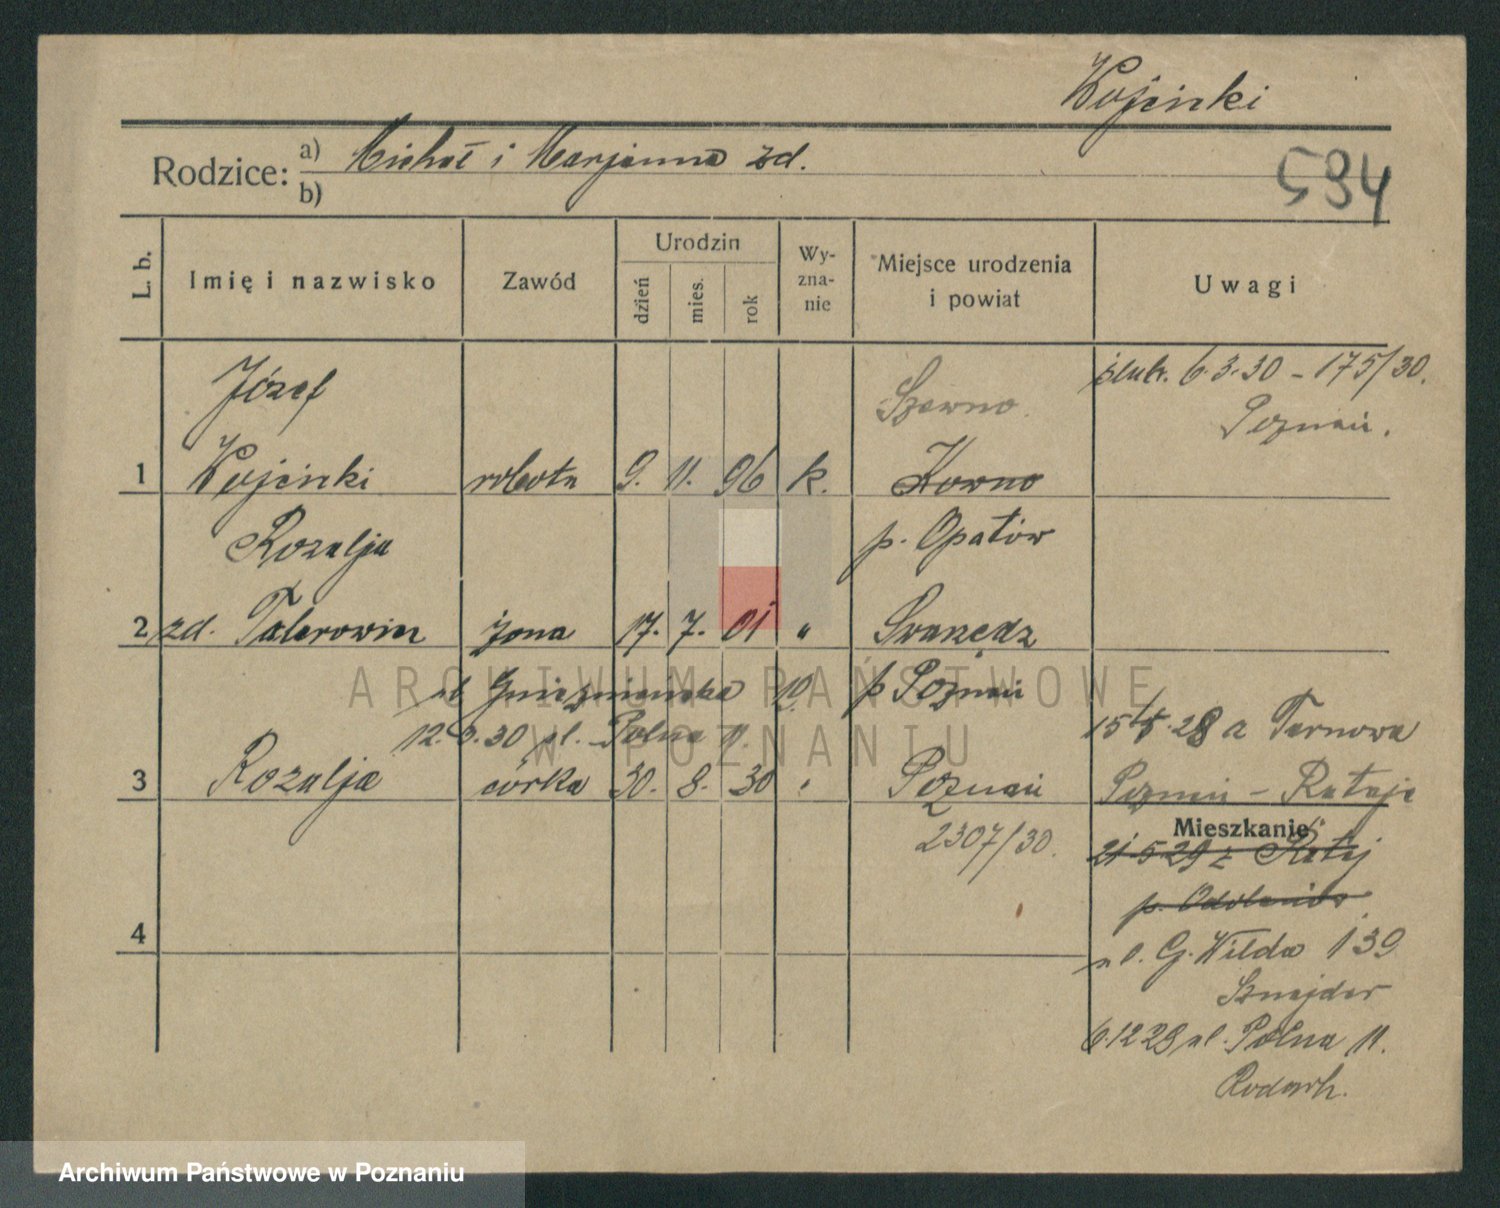 Wojcinki
Rodzice: a) Michał i Marjanna zd.
b)
594
L. b.
Imię i nazwisko
Zawód
Urodzin
dzień
mies.
rok
Wy-
zna-
nie
Miejsce urodzenia
i powiat
Uwagi
Józef
1 Wojcinki robotn 9. 11. 96 k.
Kowno
p. Opatów
ślub. 6.3.30 - 175/30.
Poznań.
Rozalja
2 zd. Talerowicz żona 17. 7. 01 "
Swarzędz
p Poznań
ul Gnieźnieńska 10
12. 30 ul. Polna 11.
3 Rozalja córka 30. 8. 30
Poznań
2307/30.
28 a Tarnowa
Poznań - Rataje
Mieszkanie
21 5 29 z Rataj
p. Odolanów
ul. G. Wilda 139
Sznajder
6.12 29 ul. Polna 11.
4
ARCHIWUM PAŃSTWOWE
W POZNANIU
Archiwum Państwowe w Poznaniu